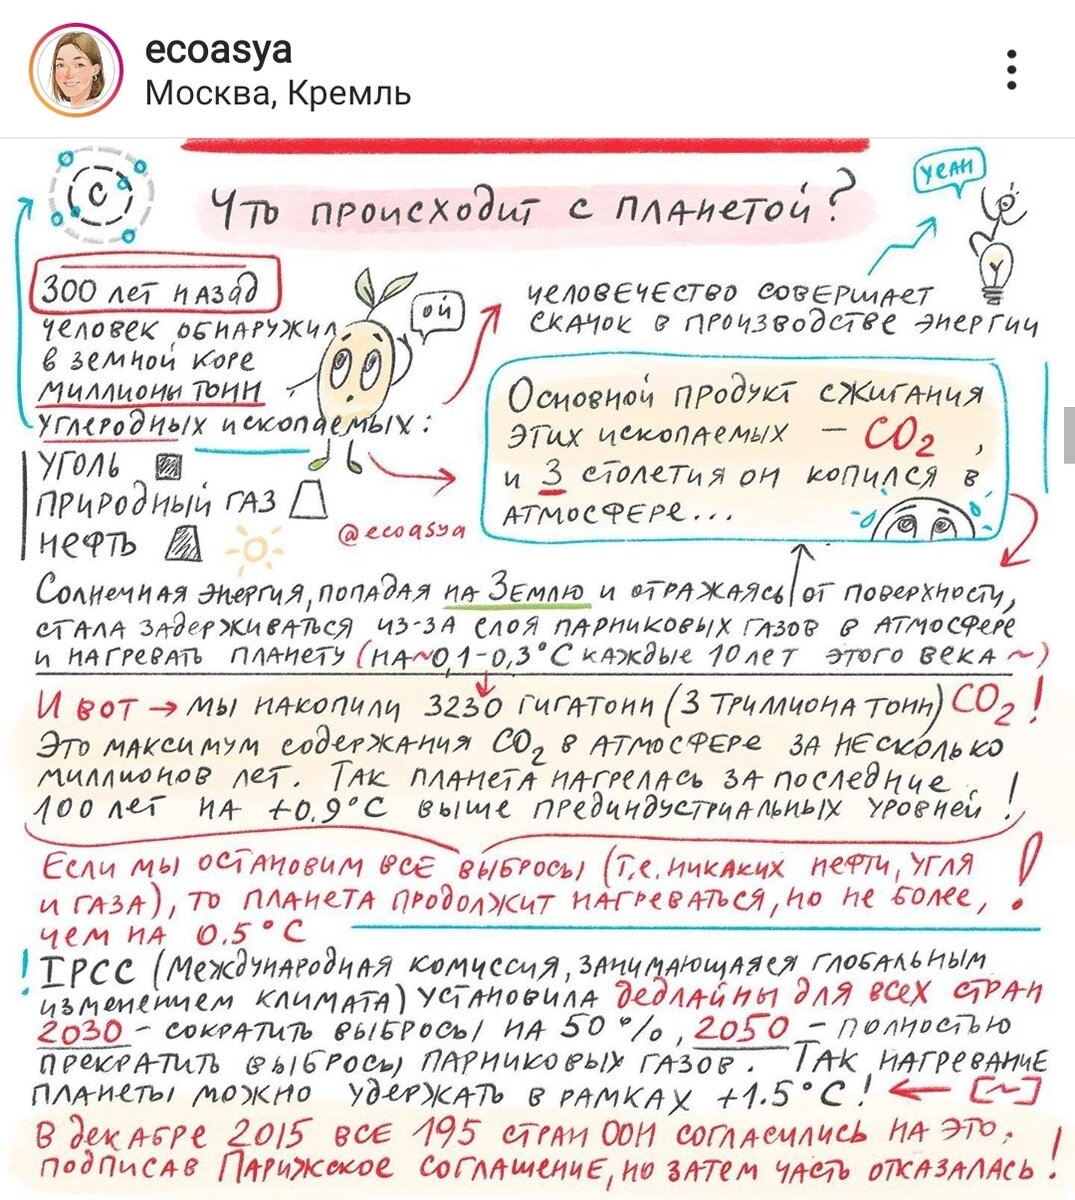 ecoasya
Москва, Кремль
C
Что происходит с планетой?
YEAH
300 лет назад
человек обнаружил
в земной коре
миллионы тонн
углеродных ископаемых:
уголь
природный газ
нефть
ой
@ecoasya
человечество совершает
скачок в производстве энергии
Основной продукт сжигания
этих ископаемых – CO2,
и 3 столетия он копился в
атмосфере...
Солнечная энергия, попадая на Землю и отражаясь от поверхности,
стала задерживаться из-за слоя парниковых газов в атмосфере
и нагревать планету (на ~0,1-0,3°C каждые 10 лет этого века ~)
И вот → мы накопили 3230 гигатонн (3 триллиона тонн) CO2!
Это максимум содержания CO2 в атмосфере за несколько
миллионов лет. Так планета нагрелась за последние
100 лет на +0.9°C выше прединдустриальных уровней!
Если мы остановим все выбросы (т.е. никаких нефти, угля
и газа), то планета продолжит нагреваться, но не более,
чем на 0.5°C !
! IPCC (Международная комиссия, занимающаяся глобальным
изменением климата) установила дедлайны для всех стран
2030 – сократить выбросы на 50%, 2050 – полностью
прекратить выбросы парниковых газов. Так нагревание
планеты можно удержать в рамках +1.5°C! ← [~]
В декабре 2015 все 195 стран ООН согласились на это,
подписав Парижское соглашение, но затем часть отказалась!